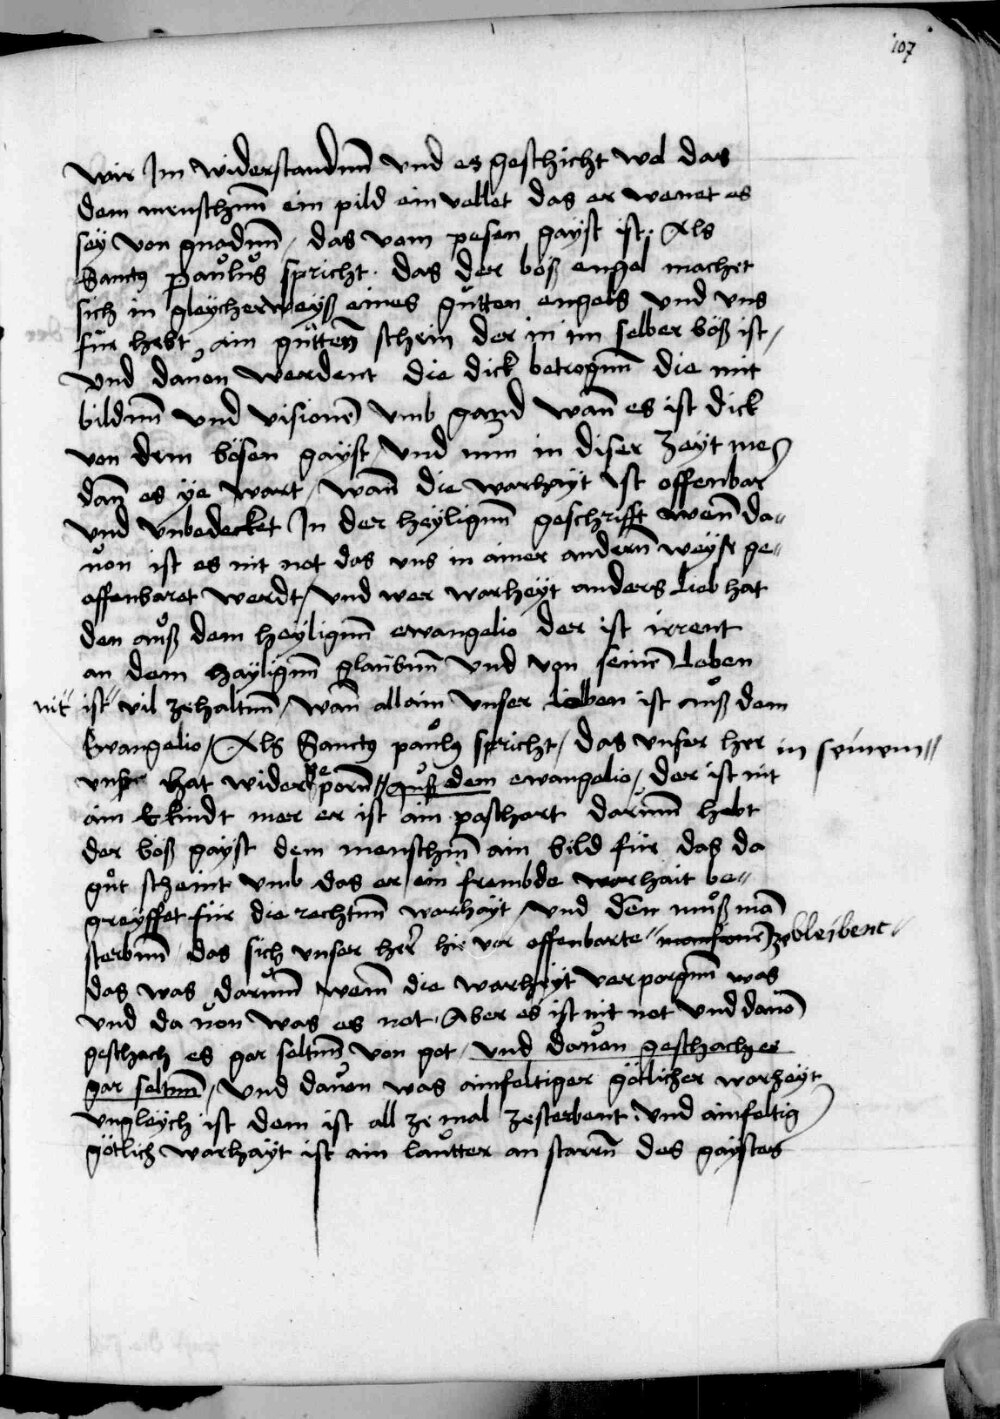 107
wir Im widerstandnn und es geschicht wol das
dem menschnn ein pild ein vellet das er wenet es
sey von gnadnn / das vom pesen gayst ist. Als
Sanctus paůlůs spricht. das der böß engel machet
sich in gleycherweyß eines gůtten engels und uns
für hebt ain gůtten schein der in im selber böß ist /
und dauon werdent die dick betrognn die mit
bildnn und visionē umb gand wan̄ es ist dick
von dem bösen gayst / und nun in diser zeyt me
dan̄ es ye wart / wan̄ die warhayt ist offenbar
und unbedecket In der heylignn geschrifft wen̄ da„
uon ist es nit not das uns in ainer andern̄ weyse ge„
offenbaret werdt / und wer warheyt anders lieb hat
den aůß dem heylignn ewangelio der ist irrent
an dem haylignn glaubnn und von seinē leben
nit ist vil zehaltnn / wan̄ allain unser leben ist aůß dem
Ewangelio / Als Sanctus paůlus spricht / das unser her in seinem„
uns hat widergeporn̄ „ aůß dem ewangelio / der ist nit
ain Ekindt mer er ist ain paschart darumm hebt
der böß gayst dem menschnn ain bild für das da
gůt scheint umb das er ein frembde warhait be„
greyffet für die rechtnn warhayt / und den můß mā
sterbnn das sich unser her̄ hie vor offenbarte „ zebleibenc„
das was darumm wem̄ die warheyt verporgnn was
und da von was es not. Aber es ist nit not und dauō
geschach es gar seltnn von got / und dauon geschach es
gar seltnn / und dauon was ainfeltiger götlicher warheyt
ungleych ist dem ist all ze mal zesterbent. und ainfeltig
götlich warhayt ist ain lauůtter an starrn̄ des gaystes